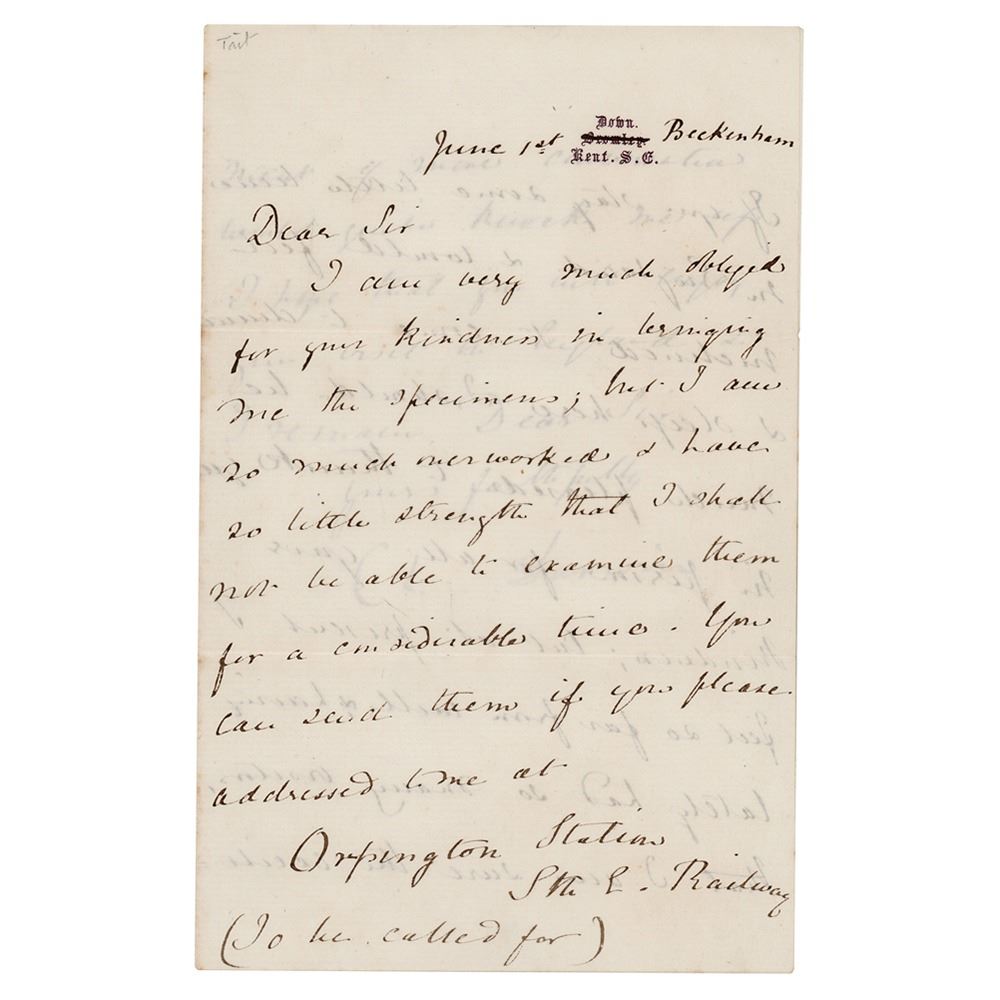 Tait
Down.
June 1st Bromley. Beckenham
Kent. S.E.
Dear Sir
I am very much obliged
for your kindness in bringing
me the specimens; but I am
so much overworked & have
so little strength that I shall
not be able to examine them
for a considerable time. You
can send them if you please
addressed to me at
Orpington Station
Sth E. Railway
(To be called for)